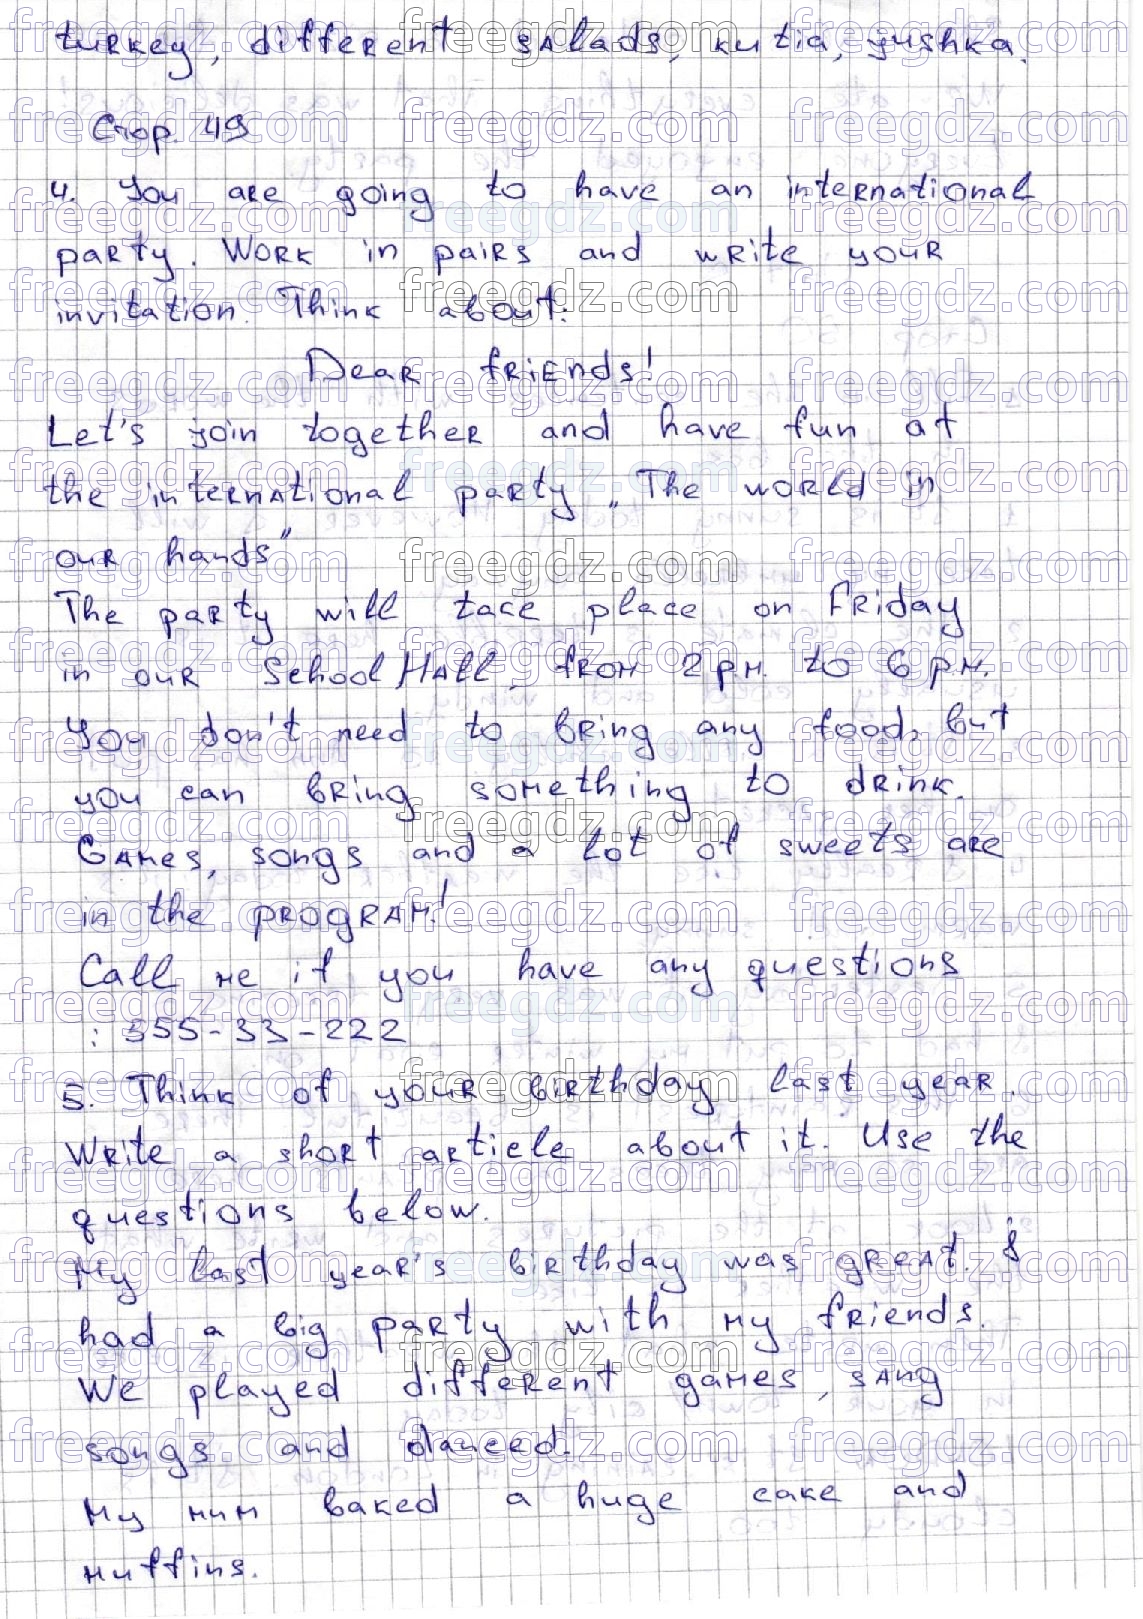 turkey, different salads, kutia, yushka.
Стор. 49
4. You are going to have an international
party. Work in pairs and write your
invitation. Think about:
Dear friends!
Let's join together and have fun at
the international party „The world in
our hands"
The party will take place on Friday
in our School Hall, from 2 p.m. to 6 p.m.
You don't need to bring any food, but
you can bring something to drink.
Games, songs and a lot of sweets are
in the program!
Call me if you have any questions
: 555-33-222
5. Think of your birthday last year.
Write a short article about it. Use the
questions below.
My last year's birthday was great. I
had a big party with my friends.
We played different games, sang
songs and danced.
My mum baked a huge cake and
muffins.
freegdz.com